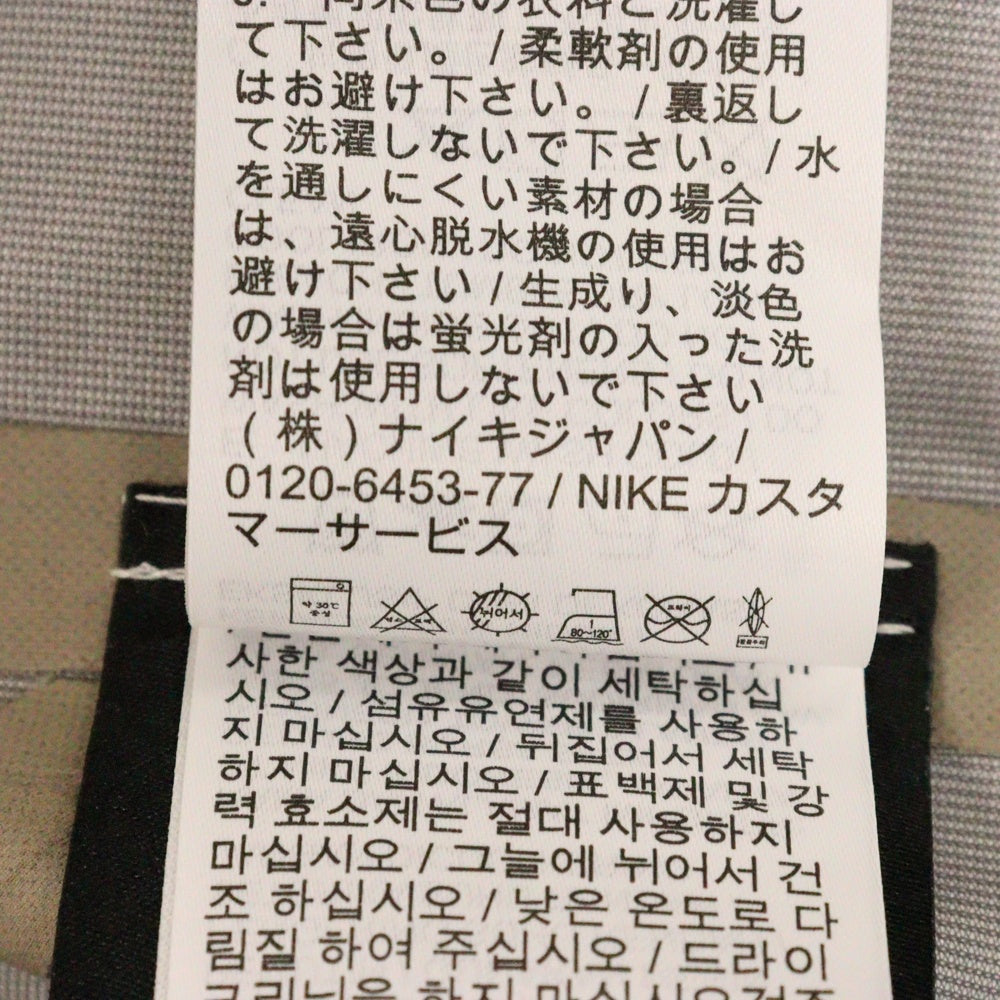 同系色の衣料と洗濯し
て下さい。 / 柔軟剤の使用
はお避け下さい。 / 裏返し
て洗濯しないで下さい。 / 水
を通しにくい素材の場合
は、遠心脱水機の使用はお
避け下さい / 生成り、淡色
の場合は蛍光剤の入った洗
剤は使用しないで下さい
( 株 ) ナイキジャパン /
0120-6453-77 / NIKE カスタ
マーサービス
약 30℃
중성
뉘어서
1
80~120°
드라이
사한 색상과 같이 세탁하십
시오 / 섬유유연제를 사용하
지 마십시오 / 뒤집어서 세탁
하지 마십시오 / 표백제 및 강
력 효소제는 절대 사용하지
마십시오 / 그늘에 뉘어서 건
조 하십시오 / 낮은 온도로 다
림질 하여 주십시오 / 드라이
크리닝을 하지 마십시오